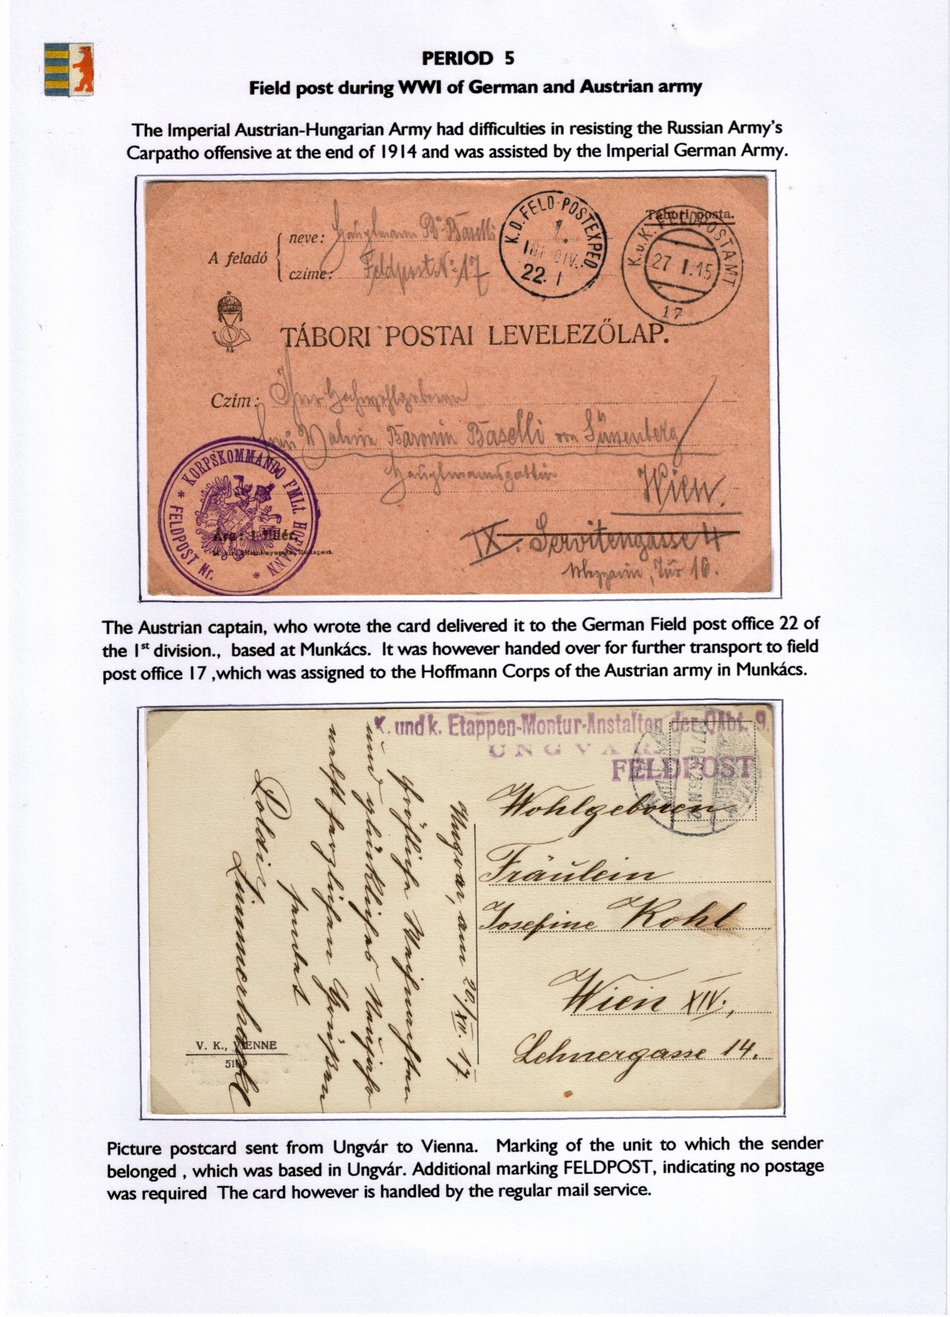 PERIOD 5
Field post during WWI of German and Austrian army
The Imperial Austrian-Hungarian Army had difficulties in resisting the Russian Army's
Carpatho offensive at the end of 1914 and was assisted by the Imperial German Army.
K.D. FELD-POSTEXPED
1.
INF. DIV.
22. I
Tábori posta.
K.u.K. FELDPOSTAMT
27 I.15
17
A feladó
neve: Hauptmann Br Baselli
czime: Feldpost No 17
TÁBORI POSTAI LEVELEZŐLAP.
Czím: Ihrer Hochwohlgeboren
Frau Baronin Baselli von Süssenberg
Hauptmannsgattin
Wien.
IX. Servitengasse 4
Tür 16.
KORPSKOMMANDO FMLt. HOFMANN
FELDPOST Nr.
Ára: 1 fillér.
The Austrian captain, who wrote the card delivered it to the German Field post office 22 of
the 1st division., based at Munkács. It was however handed over for further transport to field
post office 17 ,which was assigned to the Hoffmann Corps of the Austrian army in Munkács.
K. und k. Etappen-Montur-Anstalten der QAbt. 9.
UNGVÁR
FELDPOST
Wohlgeboren
Fräulein
Josefine Kohl
Wien XIV.,
Lehnergasse 14.
Ungvar, am 20/XII. 17.
Fröhliche Weihnachten
und glückliches Neujahr
nebst herzlichen Grüßen
sendet
V. K., VIENNE
Picture postcard sent from Ungvár to Vienna. Marking of the unit to which the sender
belonged , which was based in Ungvár. Additional marking FELDPOST, indicating no postage
was required The card however is handled by the regular mail service.